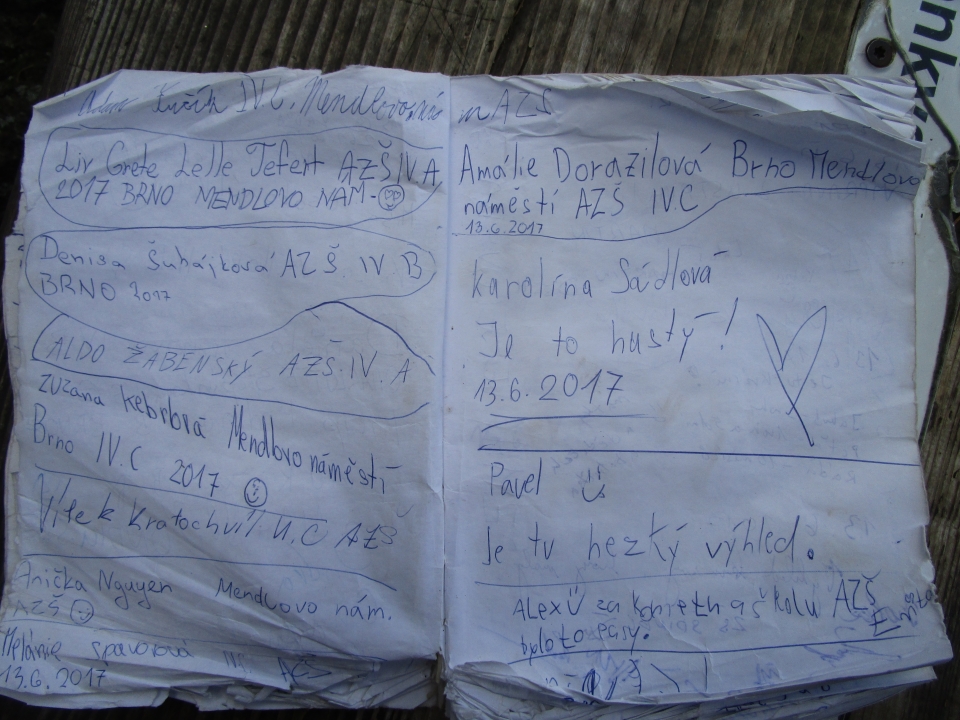 IV.C. Mendlovo nám
Liv Grete Lelle Tefert AZŠ IV.A
2017 BRNO MENDLOVO NÁM.
Denisa Šuhájková AZŠ IV B
BRNO 2017
ALDO ŽABENSKÝ AZŠ. IV. A
Zuzana Kebrlová Mendlovo náměstí
Brno IV.C 2017
Vítek Kratochvíl IV.C AZŠ
Anička Nguyen Mendlovo nám.
AZŠ
Melánie AZŠ
13.6.2017
AZŠ
Amálie Dorazilová Brno Mendlovo
náměstí AZŠ IV.C
13.6.2017
Karolína Sádlová
Je to hustý!
13.6.2017
Pavel
Je tu hezký výhled.
Alex za školu AZŠ
bylo to easy.